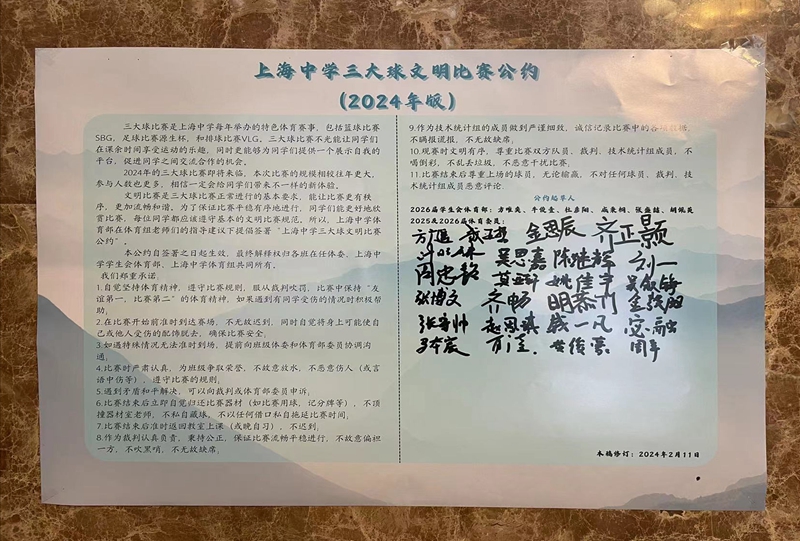 上海中学三大球文明比赛公约
（2024年版）
三大球比赛是上海中学每年举办的特色体育赛事，包括篮球比赛
SBG，足球比赛源生杯，和排球比赛VLG。三大球比赛不光能让同学们
在课余时间享受运动的乐趣，同时更能够为同学们提供一个展示自我的
平台，促进同学之间交流合作的机会。
2024年的三大球比赛即将来临，本次比赛的规模相较往年更大，
参与人数也更多，相信一定会给同学们带来不一样的新体验。
文明比赛是三大球比赛正常进行的基本要求，能让比赛更有秩
序，更加流畅和谐。为了保证比赛平稳有序地进行，同学们能更好地欣
赏比赛，每位同学都应该遵守基本的文明比赛规范。所以，上海中学体
育部在体育组老师们的指导建议下提倡签署“上海中学三大球文明比赛
公约”。
本公约自签署之日起生效，最终解释权归各班在任体委、上海中
学学生会体育部、上海中学体育组共同所有。
我们郑重承诺，
1.自觉坚持体育精神，遵守比赛规则，服从裁判吹罚。比赛中保持“友
谊第一，比赛第二”的体育精神，如果遇到有同学受伤的情况时积极帮
助。
2.在比赛开始前准时到达赛场，不无故迟到，同时自觉将身上可能使自
己或他人受伤的配饰脱去，确保比赛安全。
3.如遇特殊情况无法准时到场，提前向班级体委和体育部委员协调沟
通。
4.比赛时严肃认真，为班级争取荣誉，不故意放水，不恶意伤人（或言
语中伤等），遵守比赛的规则。
5.遇到矛盾和平解决，可以向裁判或体育部委员申诉。
6.比赛结束后立即自觉归还比赛器材（如比赛用球，记分牌等），不顶
撞器材室老师，不私自藏球，不以任何借口私自拖延比赛时间。
7.比赛结束后准时返回教室上课（或晚自习），不迟到。
8.作为裁判认真负责，秉持公正，保证比赛流畅平稳进行，不故意偏袒
一方，不吹黑哨，不无故缺席。
9.作为技术统计组的成员做到严谨细致，诚信记录比赛中的各项数据，
不瞒报谎报，不无故缺席。
10.观赛时文明有序，尊重比赛双方队员，裁判，技术统计组成员，不
喝倒彩，不乱丢垃圾，不恶意干扰比赛。
11.比赛结束后尊重上场的球员，无论输赢，不对任何球员，裁判，技
术统计组成员恶意评论。
公约起草人
2026届学生会体育部：方唯奕、牛俊童、杜彦阳、戚秉桐、张岳
2025及2026届体育委员：
金思辰 齐正颢
吴思嘉 陈继辉 刘一
周忠铭 姚佳宇
张博文 齐畅
钱一凡
周丰
本稿修订：2024年2月11日